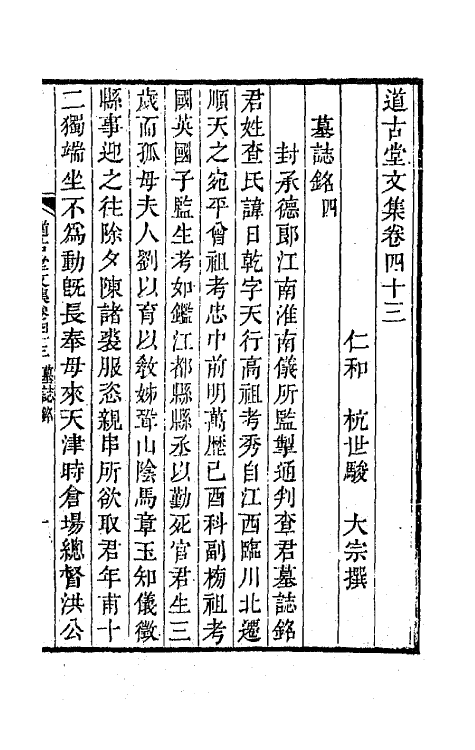 道古堂文集卷四十三
仁和　杭世駿　大宗撰
墓誌銘四
封承德郎江南淮南儀所監掣通判查君墓誌銘
君姓查氏諱日乾字天行高祖考秀自江西臨川北遷
順天之宛平曾祖考忠中前明萬歷己酉科副榜祖考
國英國子監生考如鑑江都縣縣丞以勤死官君生三
歲而孤母夫人劉以育以教姊壻山陰馬章玉知儀徵
縣事迎之往除夕陳諸裘服恣親串所欲取君年甫十
二獨端坐不為動旣長奉母來天津時倉場總督洪公
道古堂文集卷四十三 墓誌銘 一